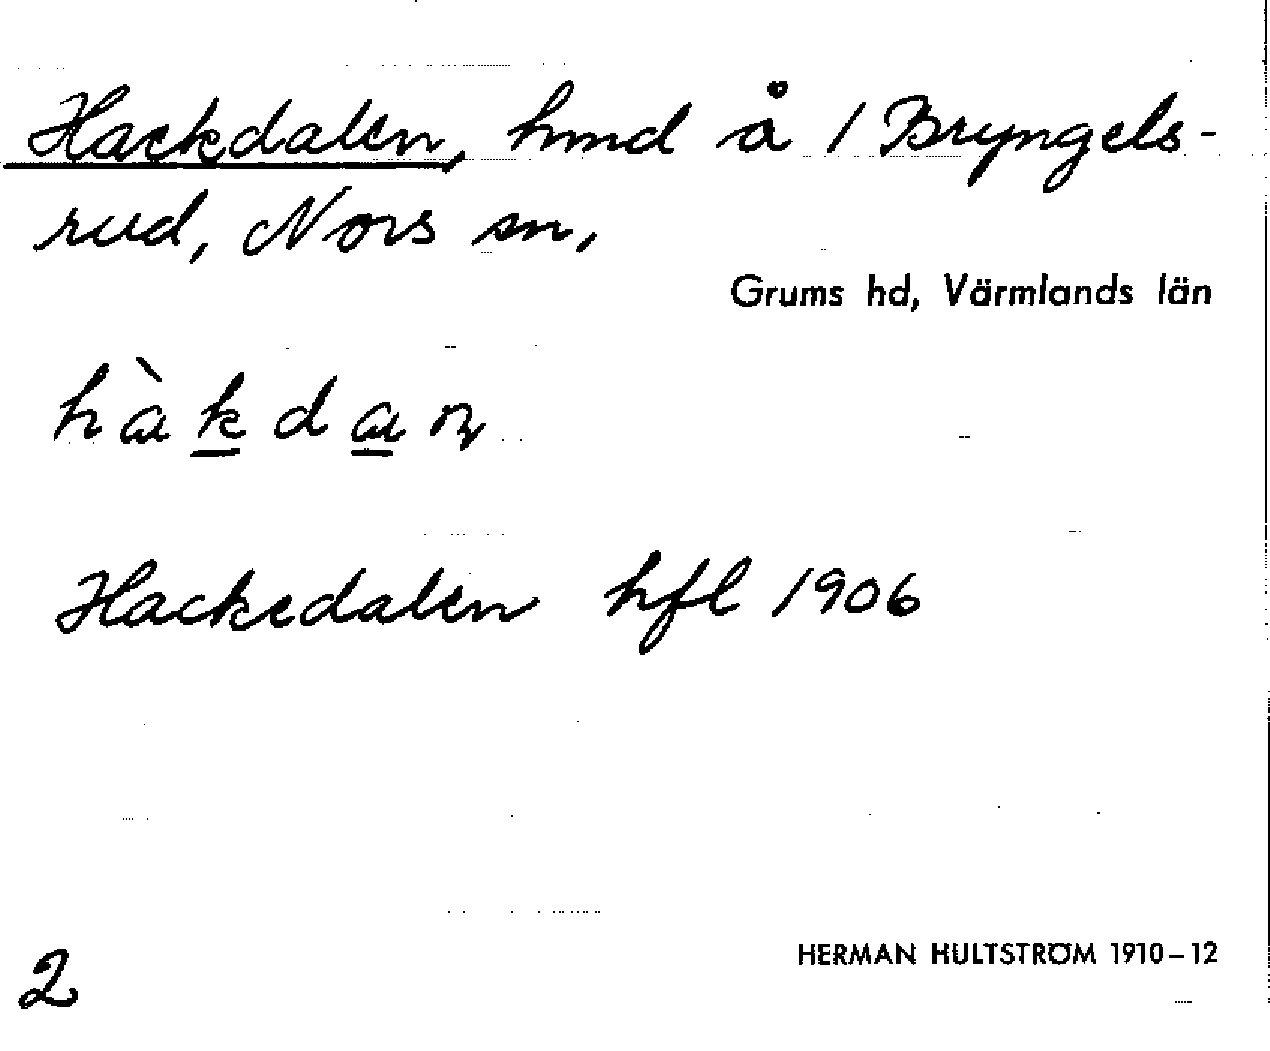 Hackdalen, hmd å 1 Bryngels-
rud, Nors sn,
Grums hd, Värmlands län
hàkdan
Hackedalen hfl 1906
2
HERMAN HULTSTRÖM 1910–12